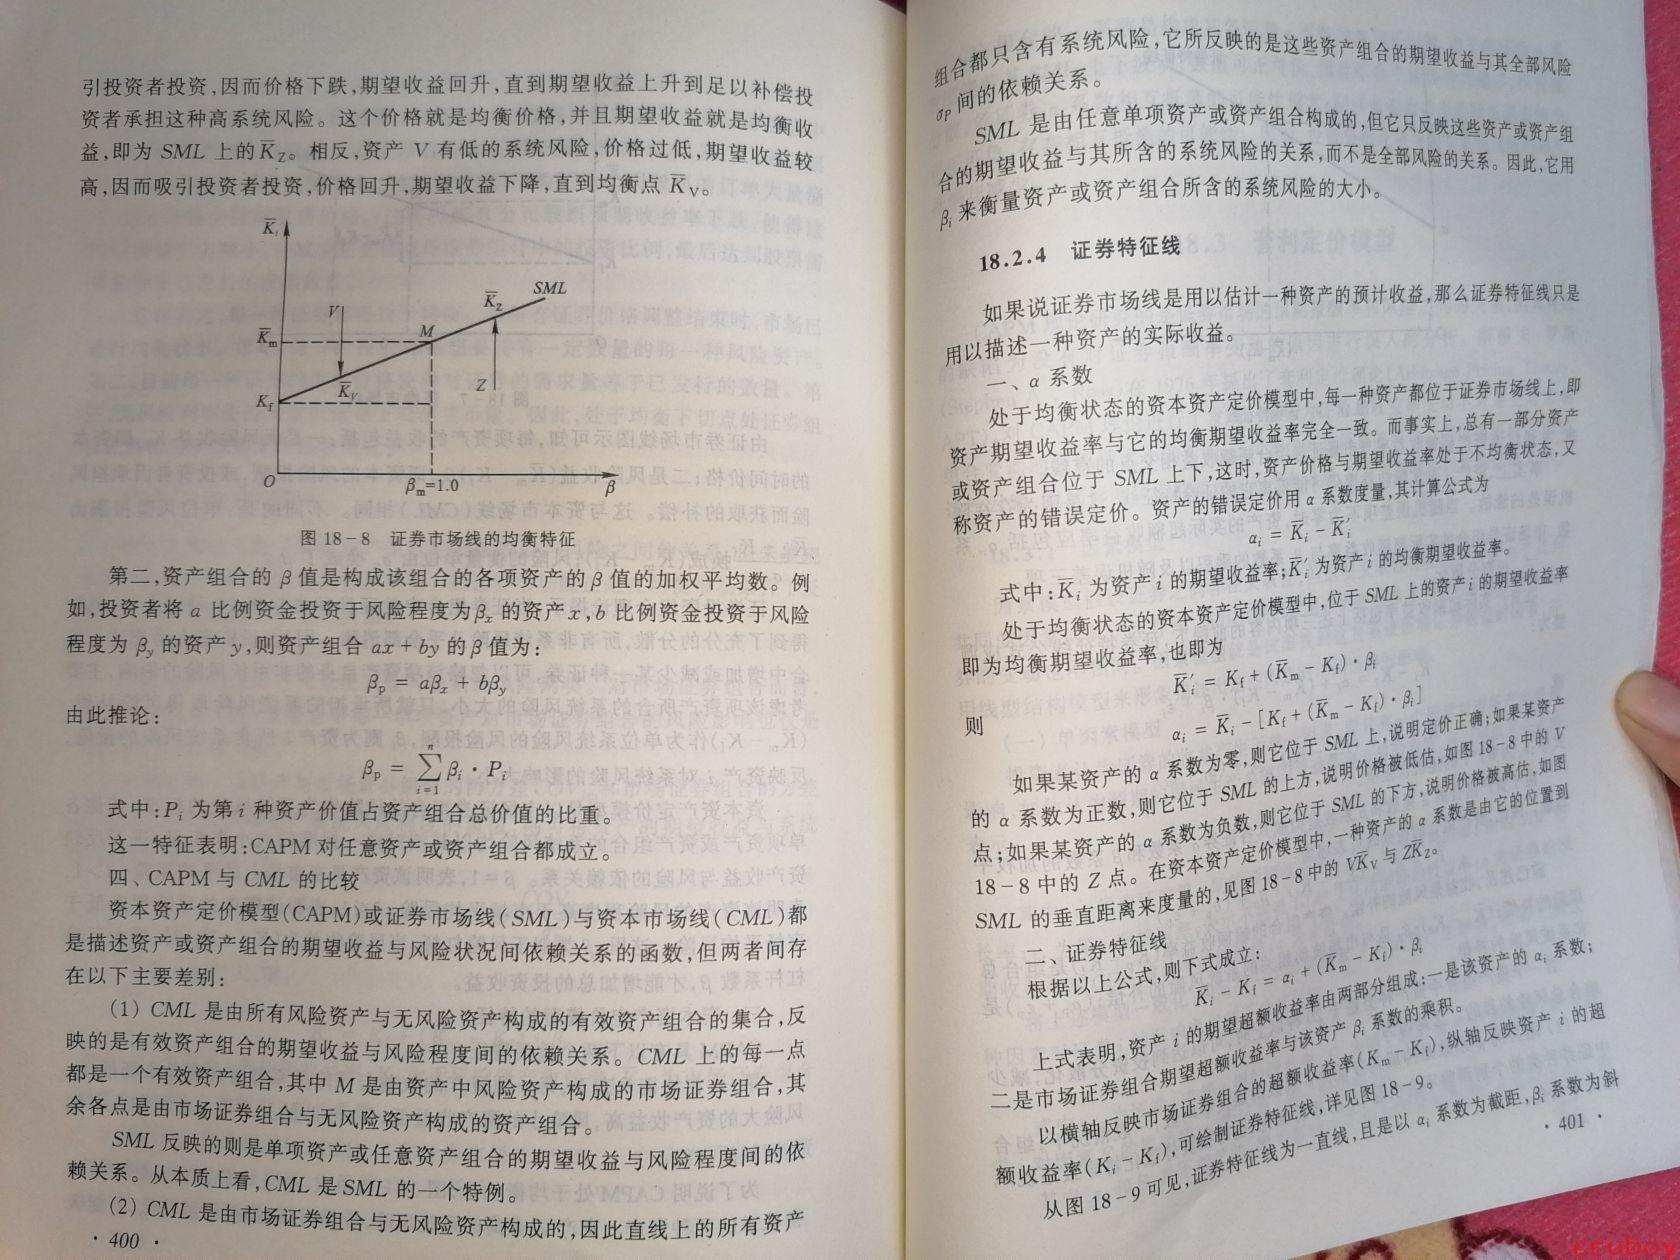 引投资者投资,因而价格下跌,期望收益回升,直到期望收益上升到足以补偿投
资者承担这种高系统风险。这个价格就是均衡价格,并且期望收益就是均衡收
益,即为 SML 上的K̅_Z。相反,资产 V 有低的系统风险,价格过低,期望收益较
高,因而吸引投资者投资,价格回升,期望收益下降,直到均衡点 K̅_V。
K̅_i
SML
K̅_Z
V
M
K̅_m
K̅_V
Z
K_f
O
β_m=1.0
β
图 18-8 证券市场线的均衡特征
第二,资产组合的 β 值是构成该组合的各项资产的 β 值的加权平均数。例
如,投资者将 a 比例资金投资于风险程度为β_x 的资产 x,b 比例资金投资于风险
程度为 β_y 的资产 y,则资产组合 ax+by 的 β 值为:
β_p = aβ_x + bβ_y
由此推论:
β_p = ∑_{i=1}^{n} β_i · P_i
式中:P_i 为第 i 种资产价值占资产组合总价值的比重。
这一特征表明:CAPM 对任意资产或资产组合都成立。
四、CAPM 与 CML 的比较
资本资产定价模型(CAPM)或证券市场线(SML)与资本市场线(CML)都
是描述资产或资产组合的期望收益与风险状况间依赖关系的函数,但两者间存
在以下主要差别:
(1) CML 是由所有风险资产与无风险资产构成的有效资产组合的集合,反
映的是有效资产组合的期望收益与风险程度间的依赖关系。CML 上的每一点
都是一个有效资产组合,其中 M 是由资产中风险资产构成的市场证券组合,其
余各点是由市场证券组合与无风险资产构成的资产组合。
SML 反映的则是单项资产或任意资产组合的期望收益与风险程度间的依
赖关系。从本质上看,CML 是 SML 的一个特例。
(2) CML 是由市场证券组合与无风险资产构成的,因此直线上的所有资产
· 400 ·
组合都只含有系统风险,它所反映的是这些资产组合的期望收益与其全部风险
σ_P 间的依赖关系。
SML 是由任意单项资产或资产组合构成的,但它只反映这些资产或资产组
合的期望收益与其所含的系统风险的关系,而不是全部风险的关系。因此,它用
β_i 来衡量资产或资产组合所含的系统风险的大小。
18.2.4 证券特征线
如果说证券市场线是用以估计一种资产的预计收益,那么证券特征线只是
用以描述一种资产的实际收益。
一、α 系数
处于均衡状态的资本资产定价模型中,每一种资产都位于证券市场线上,即
资产期望收益率与它的均衡期望收益率完全一致。而事实上,总有一部分资产
或资产组合位于 SML 上下,这时,资产价格与期望收益率处于不均衡状态,又
称资产的错误定价。资产的错误定价用 α 系数度量,其计算公式为
α_i = K̅_i - K̅_i′
式中:K̅_i 为资产 i 的期望收益率;K̅_i′ 为资产 i 的均衡期望收益率。
处于均衡状态的资本资产定价模型中,位于 SML 上的资产 i 的期望收益率
即为均衡期望收益率,也即为
K̅_i′ = K_f + (K̅_m - K_f) · β_i
则
α_i = K̅_i - [K_f + (K̅_m - K_f) · β_i]
如果某资产的 α 系数为零,则它位于 SML 上,说明定价正确;如果某资产
的 α 系数为正数,则它位于 SML 的上方,说明价格被低估,如图 18-8 中的 V
点;如果某资产的 α 系数为负数,则它位于 SML 的下方,说明价格被高估,如图
18-8 中的 Z 点。在资本资产定价模型中,一种资产的 α 系数是由它的位置到
SML 的垂直距离来度量的,见图 18-8 中的 VK̅_V 与 ZK̅_Z。
二、证券特征线
根据以上公式,则下式成立:
K̅_i - K_f = α_i + (K̅_m - K_f) · β_i
上式表明,资产 i 的期望超额收益率由两部分组成:一是该资产的 α_i 系数;
二是市场证券组合期望超额收益率与该资产 β_i 系数的乘积。
以横轴反映市场证券组合的超额收益率(K_m - K_f),纵轴反映资产 i 的超
额收益率(K_i - K_f),可绘制证券特征线,详见图 18-9。
从图 18-9 可见,证券特征线为一直线,且是以 α_i 系数为截距,β_i 系数为斜
· 401 ·